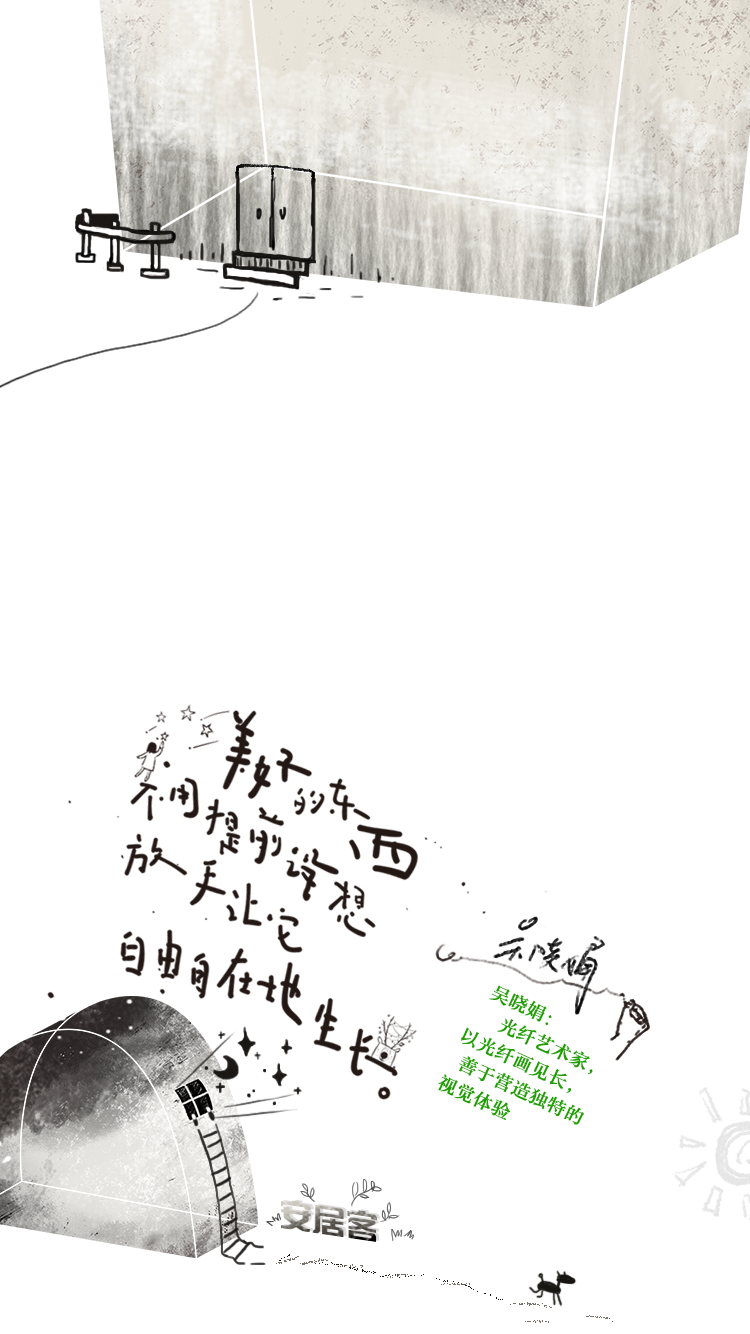 美好的东西
不用提前设想
放手让它
自由自在地生长。
吴晓娟
吴晓娟：
光纤艺术家，
以光纤画见长，
善于营造独特的
视觉体验
安居客